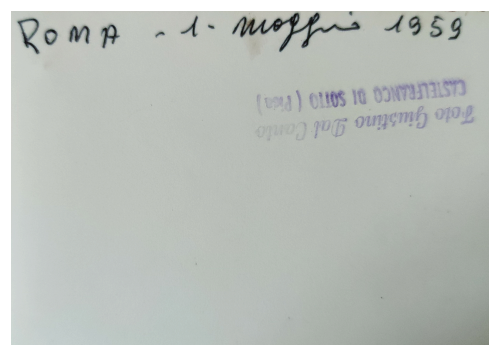 ROMA - 1 - Maggio 1959
Foto Giustino Dal Canto
CASTELFRANCO DI SOTTO (Pisa)